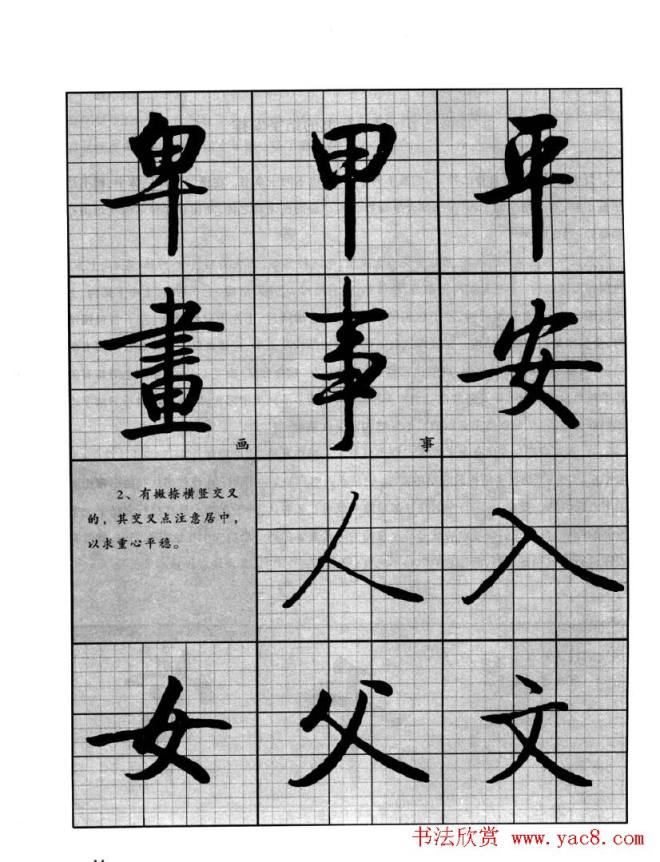 卑 甲 平
畫 画 事 事 安
2、有撇捺横竖交叉
的，其交叉点注意居中，
以求重心平稳。
人 入
女 父 文
书法欣赏 www.yac8.com